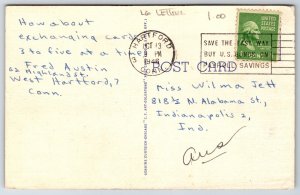 La Letter
1.00
How about
exchanging car
3 to five at a time
Fred Austin
62 Highland St.
West Hartford, 7
Conn.
HARTFORD
OCT 13
PM
CONN.
SAVE THE EASY WAY
BUY U.S. BONDS ON
PAYROLL SAVINGS
POST CARD
Miss Wilma Jett
818½ N. Alabama St.,
Indianapolis 2,
Ind.
Ans